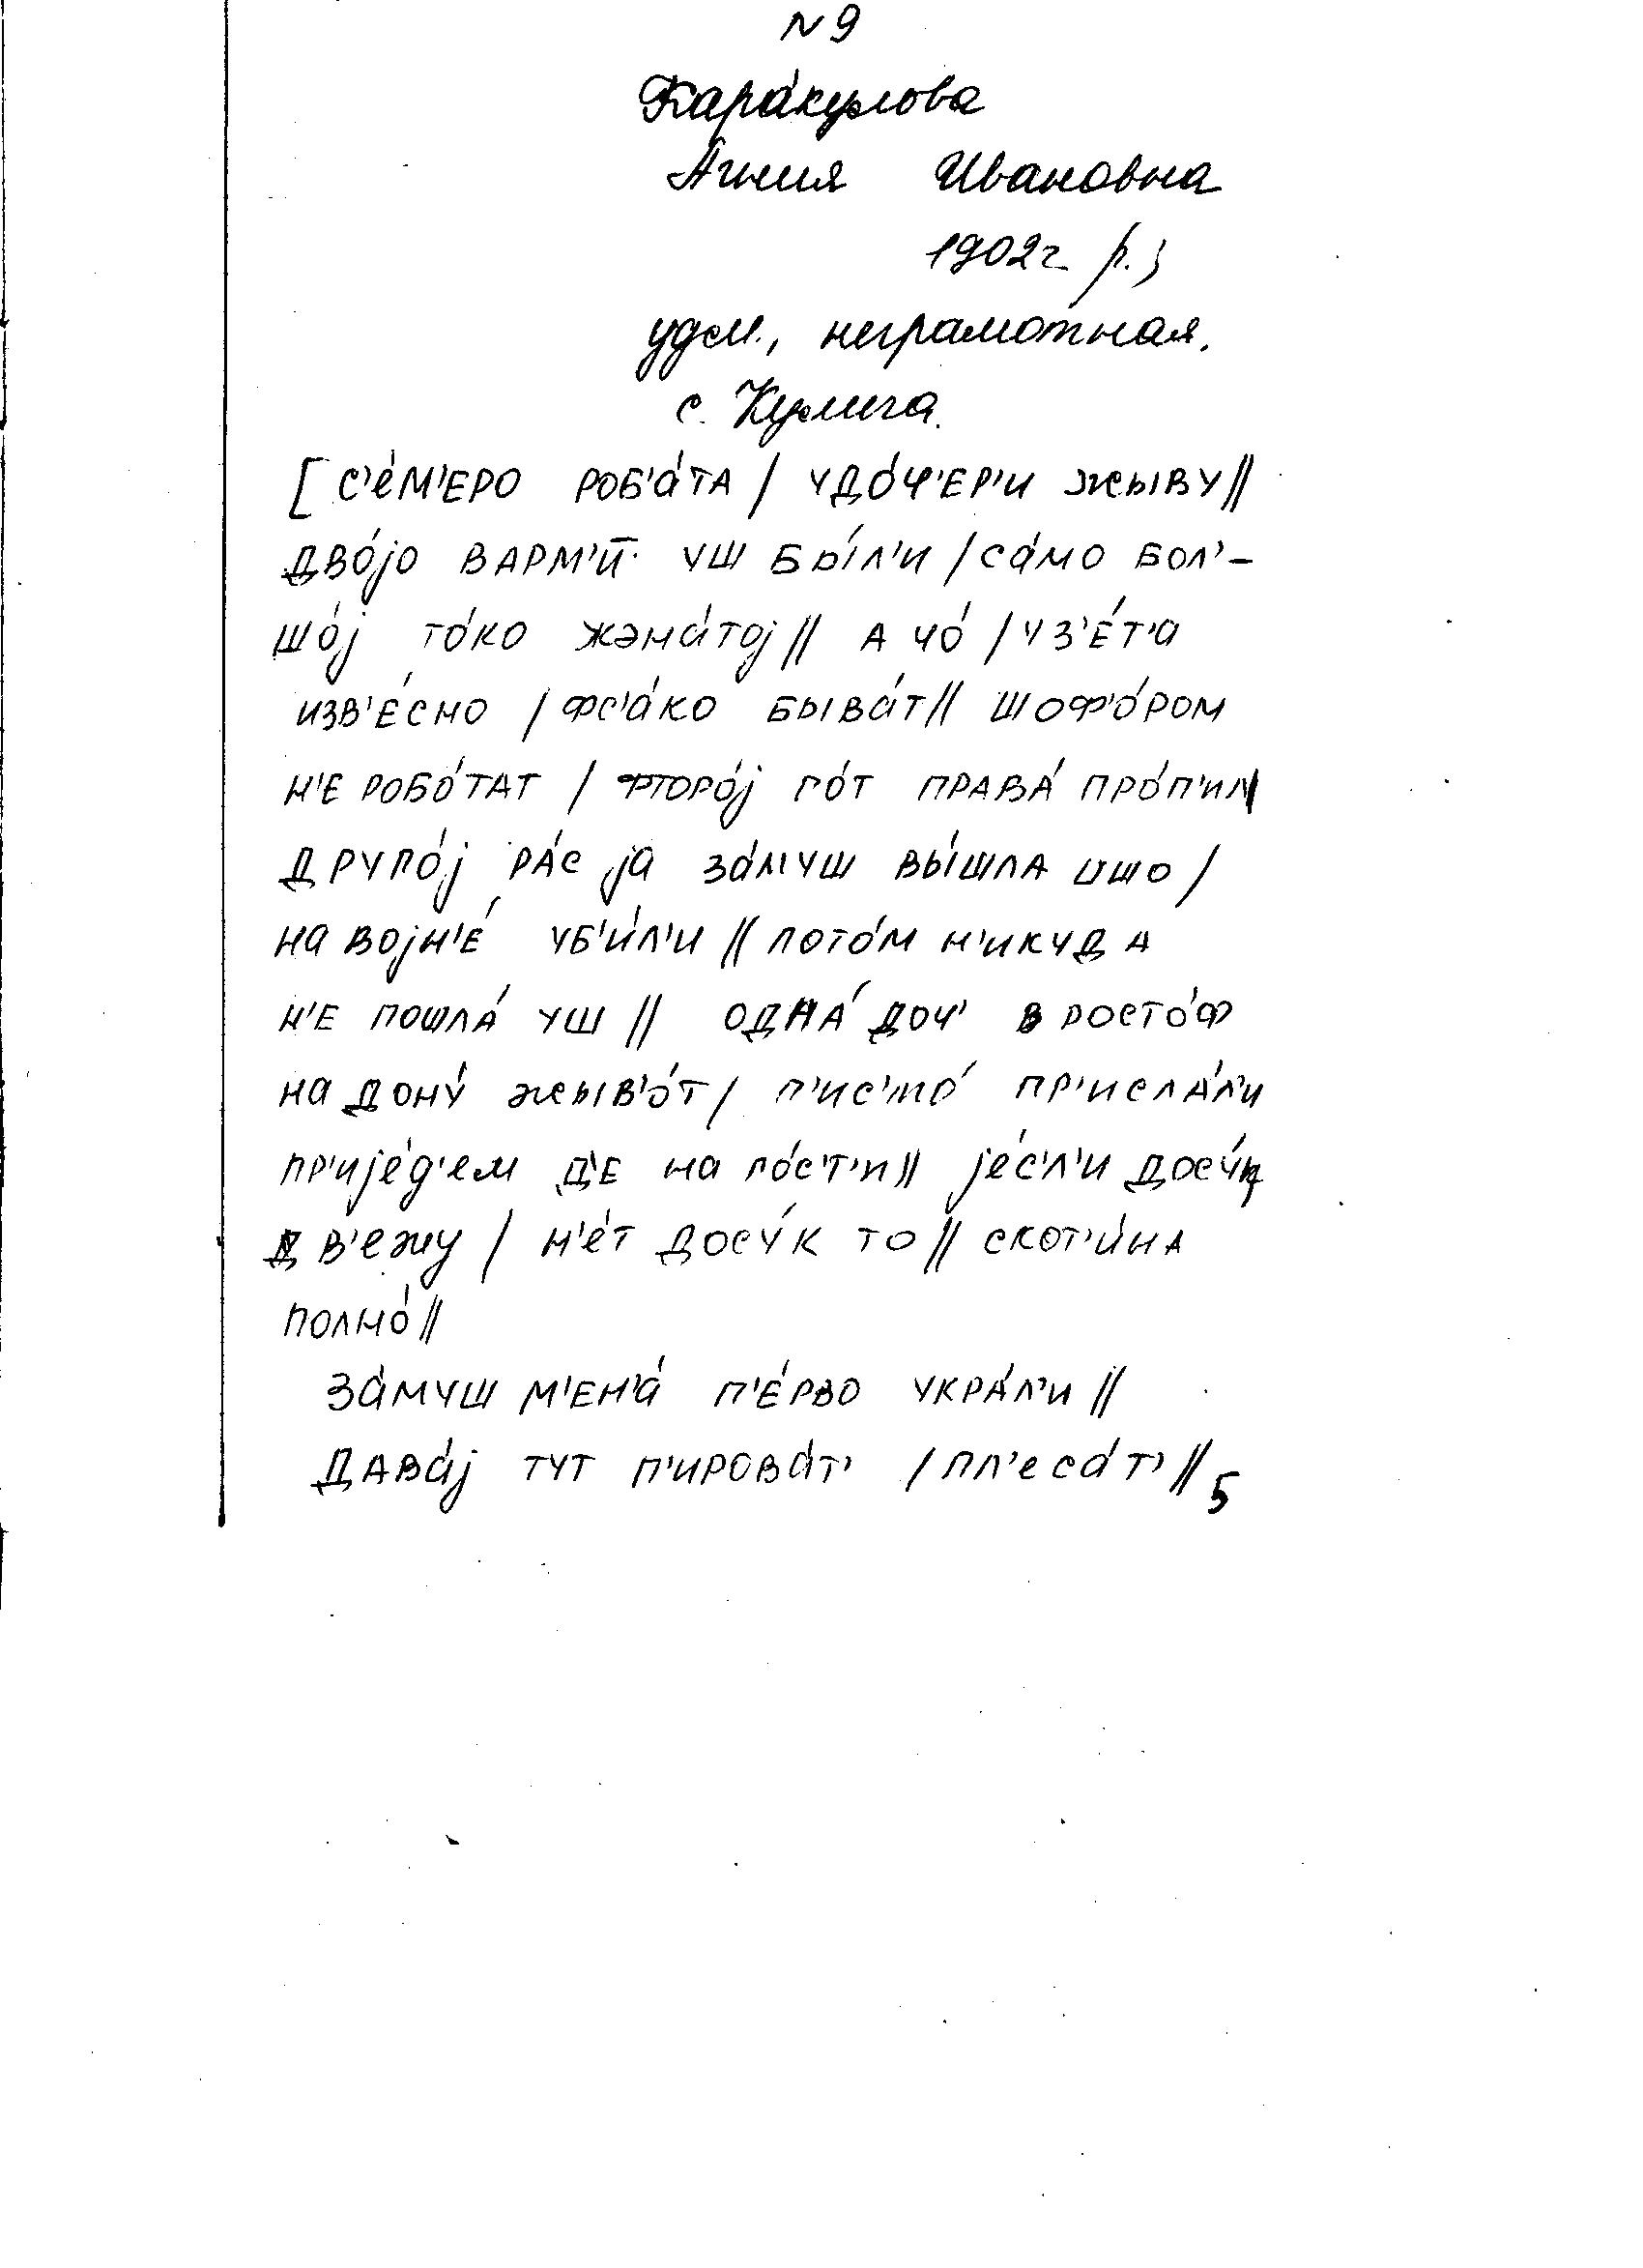 N 9
Кара́кулова
Агния Ивановна
1902 г. р.,
удм., неграмотная.
с. Кулига.
[с'е́м'еро роб'а́та / удо́ч'ер'и жыву //
дво́јо варм'и́ уш бы́л'и / са́мо бол'-
шо́ј то́ко жэна́тој // а чо́ / уз'е́т'а
изв'е́сно / фс'а́ко быва́т // шоф'о́ром
н'е робо́тат / фторо́ј го́т права́ про́п'ил /
друго́ј ра́с ја за́муш вы́шла ишо /
на војн'е́ уб'и́л'и // пото́м н'икуда
н'е пошла́ уш // одна́ доч' в росто́ф
на дону́ жыв'о́т / п'ис'мо́ пр'исла́л'и
пр'ије́д'ем д'е на го́с'т'и // је́с'л'и досу́к
дв'ежу / н'е́т досу́к то // скот'и́на
полно́ //
за́муш м'ен'а́ п'е́рво укра́л'и //
дава́ј тут п'ирова́т' / пл'еса́т' //
5